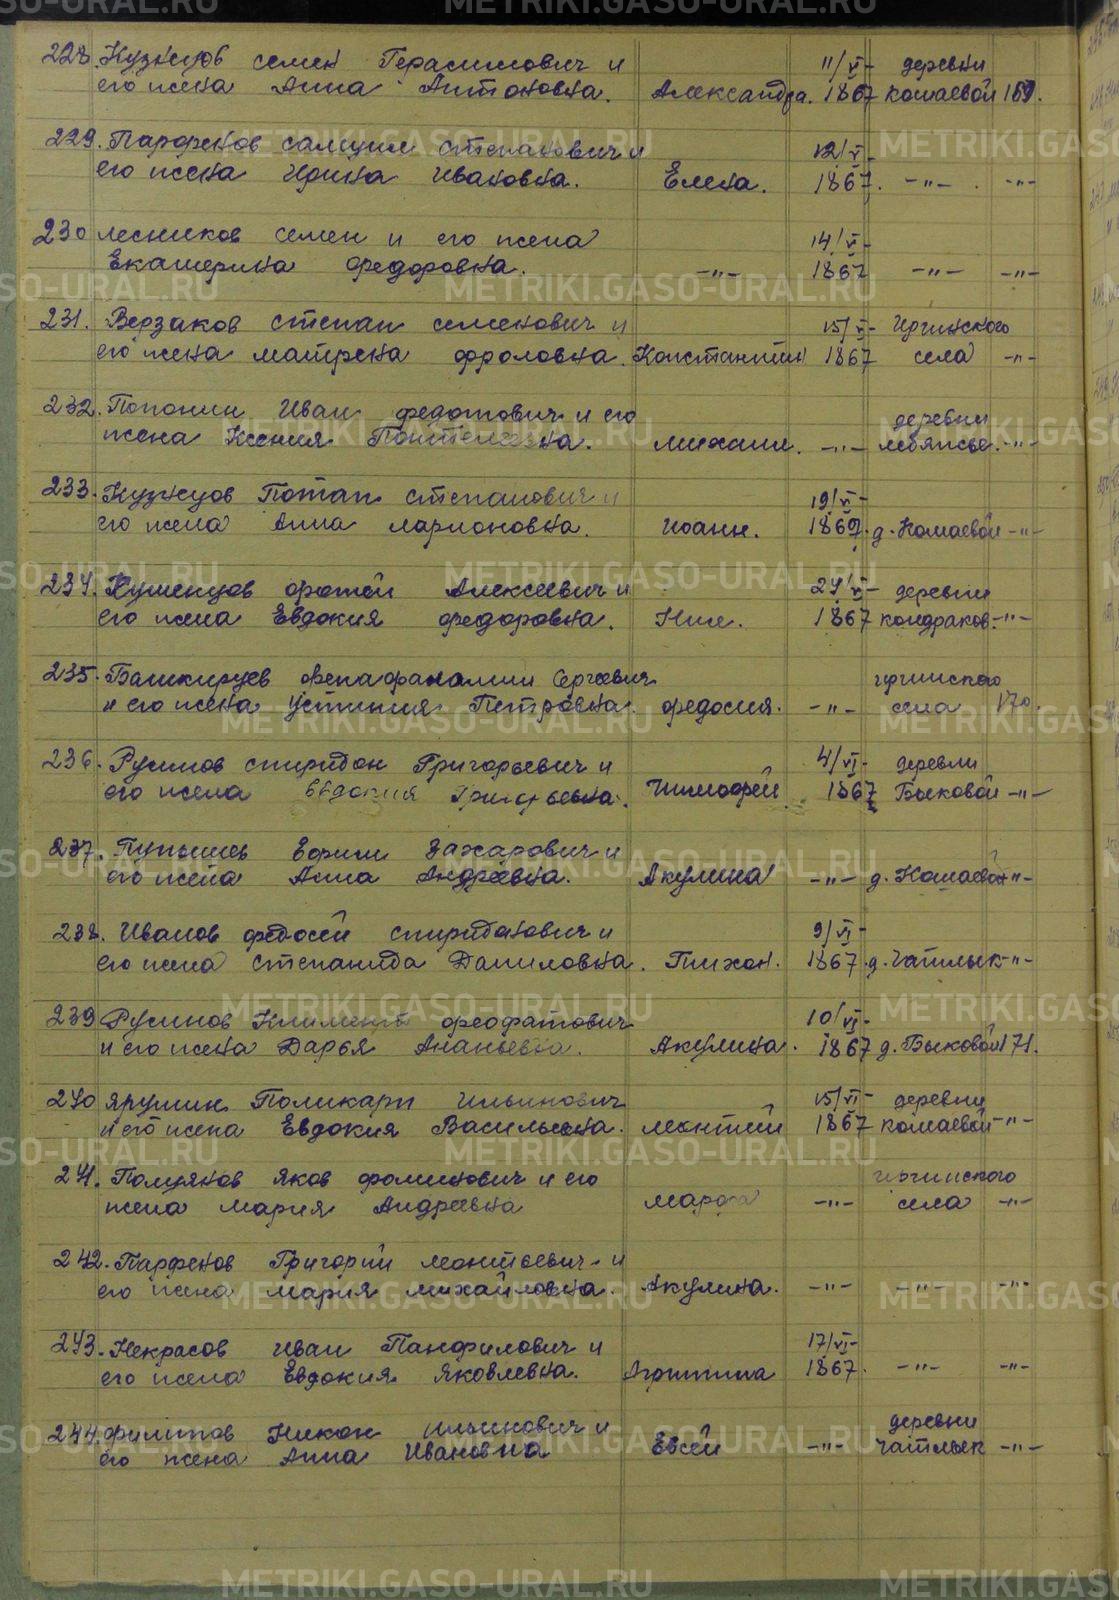 228. Кузнецов семен Герасимович и 11/VI- деревни
его жена Анна Антоновна. Александра. 1867 комаевой 169.
229. Парфенов самуил степанович и 12/VI-
его жена Ирина Ивановна. Елена. 1867. -"- . -"-
230 лесников семен и его жена 14/VI-
Екатерина федоровна. -"- 1867 -"- -"-
231. Верзаков степан семенович и 15/VI- Иргинского
его жена матрена фроловна. Константин 1867 села -"-
232. Попонин Иван федотович и его деревни
жена Ксения михаил. -"- лебяжье. -"-
233. Кузнецов Потап степанович и 19/VI-
его жена Анна ларионовна. Иоанн. 1867. д. Комаевой -"-
234. фотей Алексеевич и 24/VI- деревни
его жена Евдокия федоровна. Нил. 1867 кондраков. -"-
235. Башкирцев Сергеевич иргинского
и его жена Устиния Петровна. федосия. -"- села 170.
236. Русинов спиридон Григорьевич и 4/VI- деревни
его жена Евдокия Григорьевна. Тимофей 1867 Быковой -"-
237. Пупышев Ефим Захарович и
его жена Анна Андреевна. Акулина -"- д. Комаевой -"-
238. Иванов федосей спиридонович и 9/VI-
его жена степанида Даниловна. Тихон. 1867. д. Чатлык -"-
239 Русинов Климент феофатович 10/VI-
и его жена Дарья Ананьевна. Акулина. 1867 д. Быковой 171.
240 Ярушин Поликарп Ильинович 15/VI- деревни
и его жена Евдокия Васильевна. леонтий 1867 комаевой -"-
241. Яков фоминович и его иргинского
жена Мария Андреевна марфа -"- села -"-
242. Парфенов Григорий леонтьевич и
его жена мария михайловна. Акулина. -"- -"- -"-
243. Некрасов Иван Панфилович и 17/VI-
его жена Евдокия Яковлевна. Агрипина 1867. -"- -"-
244. филипов Никон ильинович и деревни
его жена Анна Ивановна Евсей -"- чатлык -"-
METRIKI.GASO-URAL.RU